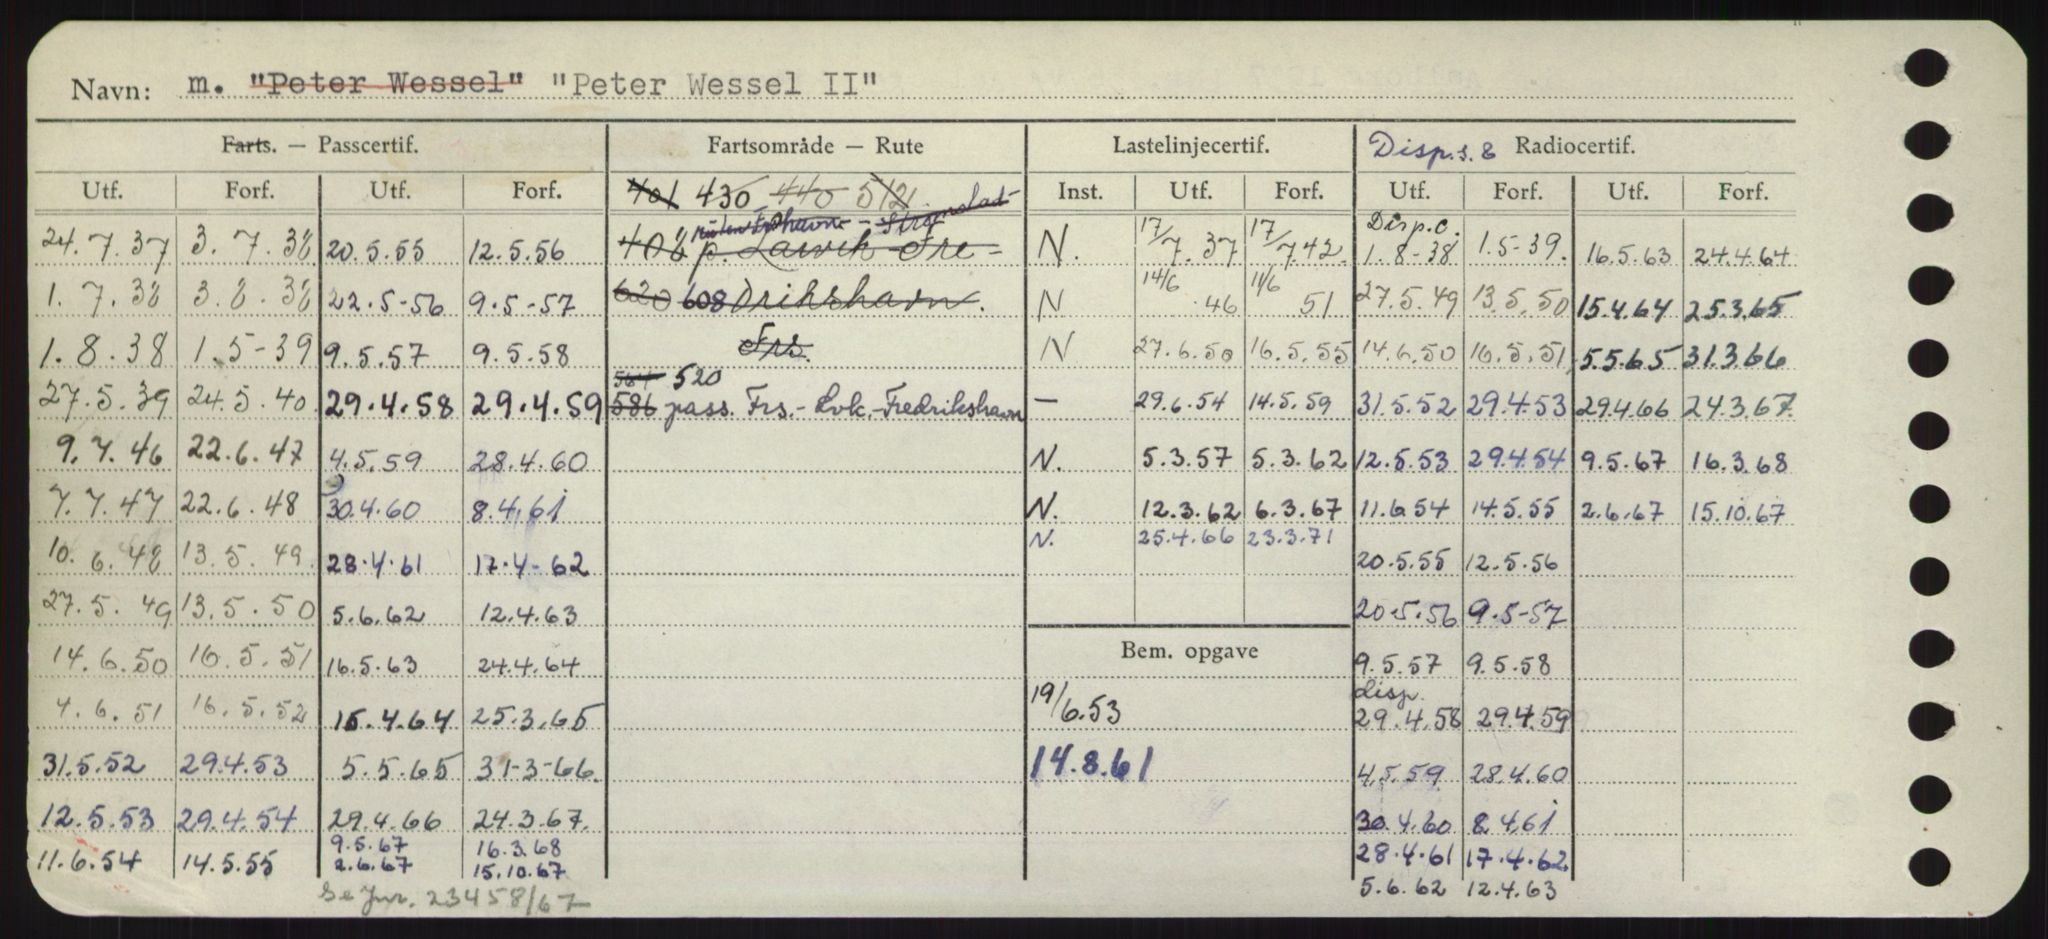 Navn: m. "Peter Wessel" "Peter Wessel II"
Farts. — Passcertif. Fartsområde — Rute Lastelinjecertif. Disp.s. & Radiocertif.
Utf. Forf. Utf. Forf. 401 430 440 512 Inst. Utf. Forf. Utf. Forf. Utf. Forf.
Disp.c.
24.7.37 3.7.38 20.5.55 12.5.56 408 p. Larvik-Fre- N. 17/7.37 17/7.42 1.8-38 1.5-39. 16.5.63 24.4.64
1.7.38 3.8.38 22.5-56 9.5-57 620 608 drikshavn. N 14/6 46 11/6 51 27.5.49 13.5.50 15.4.64 25.3.65
1.8.38 1.5-39 9.5.57 9.5.58 Frs. N 27.6.50 16.5.55 14.6.50 16.5.51 5.5.65 31.3.66
564 520
27.5.39 24.5.40 29.4.58 29.4.59 586 pass. Frs.-Lvk.-Fredrikshavn — 29.6.54 14.5.59 31.5.52 29.4.53 29.4.66 24.3.67
9.7.46 22.6.47 4.5.59 28.4.60 N. 5.3.57 5.3.62 12.5.53 29.4.54 9.5.67 16.3.68
7.7.47 22.6.48 30.4.60 8.4.61 N. 12.3.62 6.3.67 11.6.54 14.5.55 2.6.67 15.10.67
N. 25.4.66 23.3.71
10.6.48 13.5.49 28.4.61 17.4-62 20.5.55 12.5.56
27.5.49 13.5.50 5.6.62 12.4.63 20.5.56 9.5-57
Bem. opgave
14.6.50 16.5.51 16.5.63 24.4.64 9.5.57 9.5.58
disp.
4.6.51 16.5.52 15.4.64 25.3.65 19/6.53 29.4.58 29.4.59
31.5.52 29.4.53 5.5.65 31-3-66. 14.8.61 4.5.59 28.4.60
12.5.53 29.4.54 29.4.66 24.3.67. 30.4.60 8.4.61
9.5.67 16.3.68
11.6.54 14.5.55 2.6.67 15.10.67 28.4.61 17.4.62
Se Jnr. 23458/67 5.6.62 12.4.63